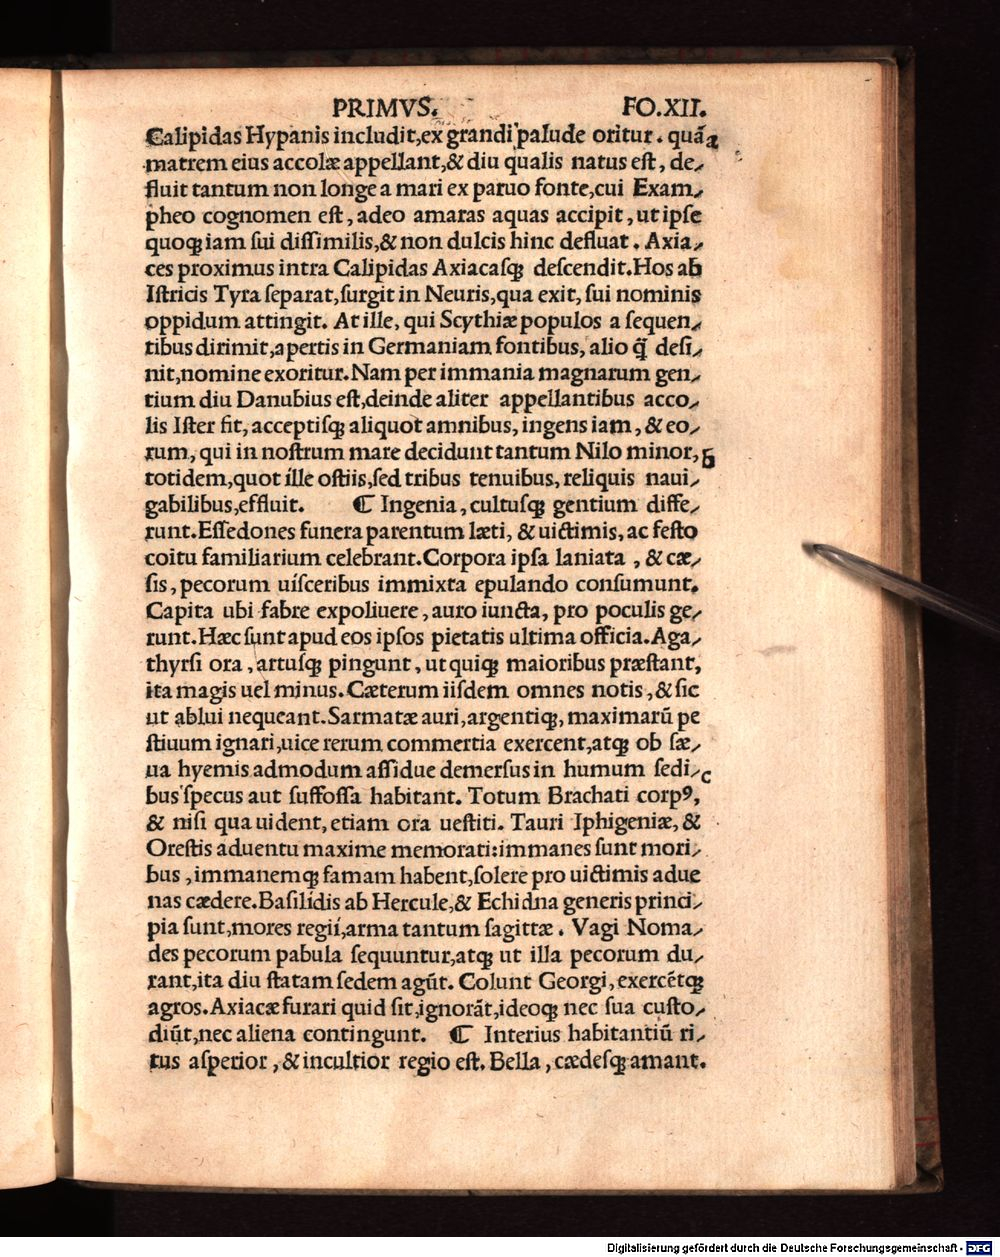 PRIMVS. FO.XII.
Calipidas Hypanis includit,ex grandi palude oritur. quã a
matrem eius accolæ appellant,& diu qualis natus eſt, de⸗
fluit tantum non longe a mari ex paruo fonte,cui Exam⸗
pheo cognomen eſt, adeo amaras aquas accipit, ut ipſe
quoqꝫ iam ſui diſſimilis,& non dulcis hinc defluat. Axia⸗
ces proximus intra Calipidas Axiacaſqꝫ deſcendit.Hos ab
Iſtricis Tyra ſeparat,ſurgit in Neuris,qua exit, ſui nominis
oppidum attingit. At ille, qui Scythiæ populos a ſequen⸗
tibus dirimit,apertis in Germaniam fontibus, alio q̃ deſi⸗
nit,nomine exoritur.Nam per immania magnarum gen⸗
tium diu Danubius eſt,deinde aliter appellantibus acco⸗
lis Iſter fit, acceptiſqꝫ aliquot amnibus, ingens iam, & eo⸗
rum, qui in noſtrum mare decidunt tantum Nilo minor, b
totidem,quot ille oſtiis,ſed tribus tenuibus, reliquis naui⸗
gabilibus,effluit. ¶ Ingenia, cultuſqꝫ gentium diffe⸗
runt.Eſſedones funera parentum læti, & uictimis, ac feſto
coitu familiarium celebrant.Corpora ipſa laniata, & cæ⸗
ſis, pecorum uiſceribus immixta epulando conſumunt.
Capita ubi fabre expoliuere, auro iuncta, pro poculis ge⸗
runt.Hæc ſunt apud eos ipſos pietatis ultima officia.Aga⸗
thyrſi ora, artuſqꝫ pingunt, ut quiqꝫ maioribus præſtant,
ita magis uel minus.Cæterum iiſdem omnes notis, & ſic
ut ablui nequeant.Sarmatæ auri,argentiqꝫ, maximarũ pe
ſtiuum ignari,uice rerum commertia exercent,atqꝫ ob ſæ⸗
ua hyemis admodum aſſidue demerſus in humum ſedi⸗ c
bus ſpecus aut ſuffoſſa habitant. Totum Brachati corpꝰ,
& niſi qua uident, etiam ora ueſtiti. Tauri Iphigeniæ, &
Oreſtis aduentu maxime memorati:immanes ſunt mori⸗
bus, immanemqꝫ famam habent,ſolere pro uictimis adue
nas cædere.Baſilidis ab Hercule,& Echidna generis princi⸗
pia ſunt,mores regii,arma tantum ſagittæ. Vagi Noma⸗
des pecorum pabula ſequuntur,atqꝫ ut illa pecorum du⸗
rant,ita diu ſtatam ſedem agũt. Colunt Georgi, exercẽtqꝫ
agros.Axiacæ furari quid ſit,ignorãt,ideoqꝫ nec ſua cuſto⸗
diũt,nec aliena contingunt. ¶ Interius habitantiũ ri⸗
tus aſperior, & incultior regio eſt. Bella, cædeſqꝫ amant.
Digitalisierung gefördert durch die Deutsche Forschungsgemeinschaft - DFG